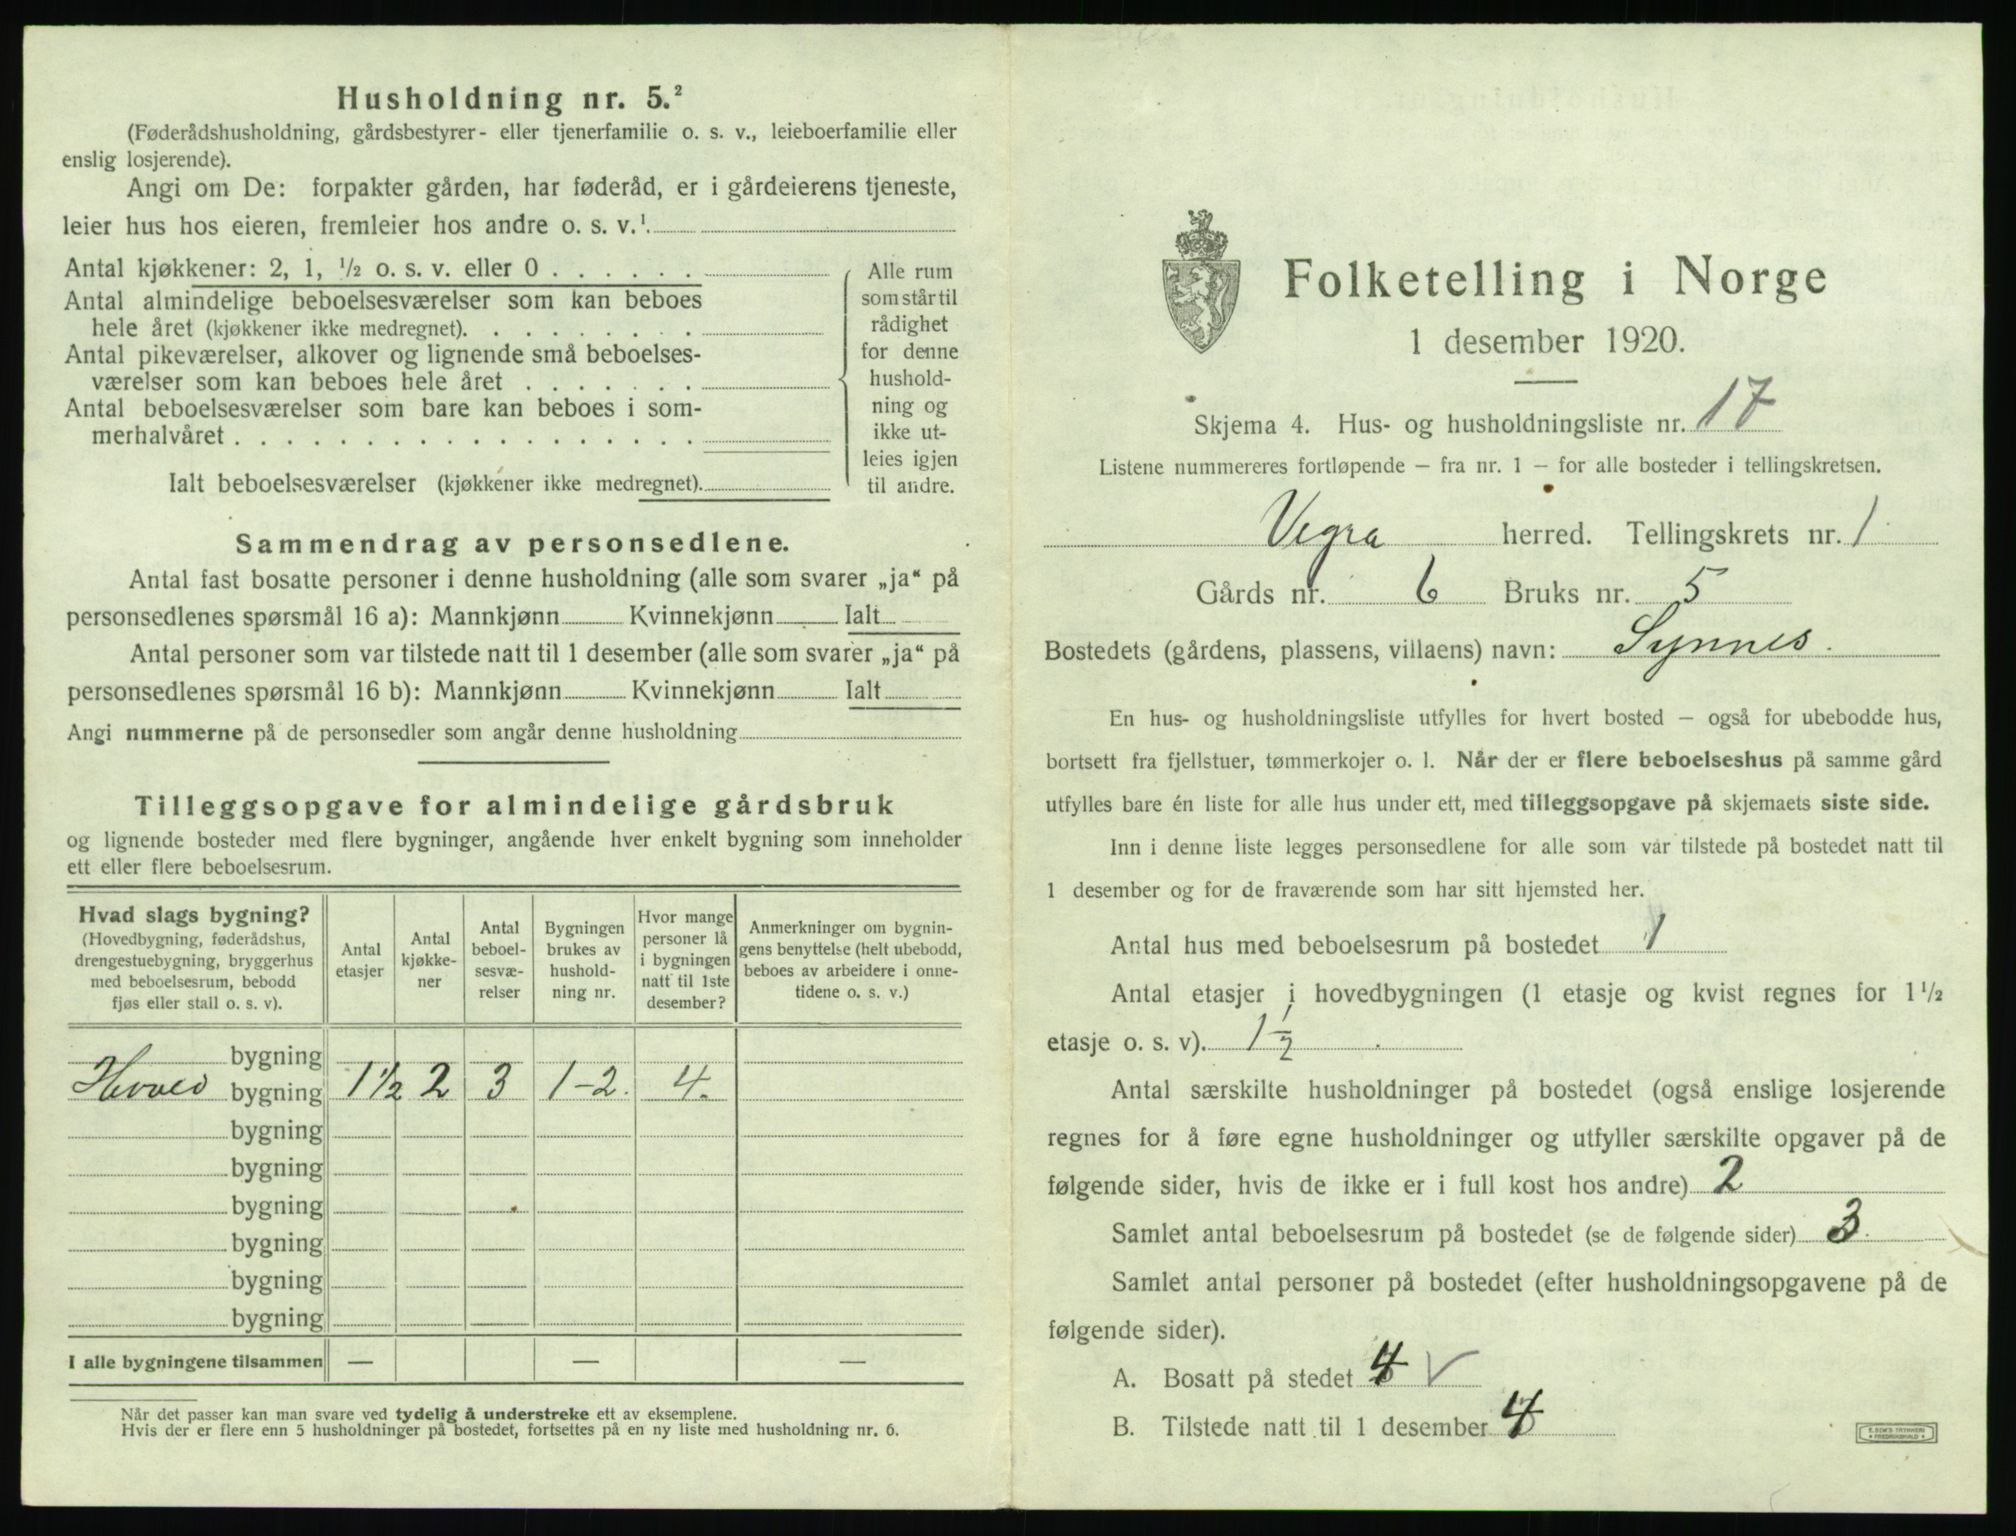 Husholdning nr. 5.²
(Føderådshusholdning, gårdsbestyrer- eller tjenerfamilie o. s. v., leieboerfamilie eller
enslig losjerende).
Angi om De: forpakter gården, har føderåd, er i gårdeierens tjeneste,
leier hus hos eieren, fremleier hos andre o. s. v.¹
Antal kjøkkener: 2, 1, ½ o. s. v. eller 0 . . . . . .
Antal almindelige beboelsesværelser som kan beboes
hele året (kjøkkener ikke medregnet). . . . . . . . .
Antal pikeværelser, alkover og lignende små beboelses-
værelser som kan beboes hele året . . . . . . .
Antal beboelsesværelser som bare kan beboes i som-
merhalvåret . . . . . . . . . . . . . . . . . .
Ialt beboelsesværelser (kjøkkener ikke medregnet).
Alle rum
som står til
rådighet
for denne
hushold-
ning og
ikke ut-
leies igjen
til andre.
Sammendrag av personsedlene.
Antal fast bosatte personer i denne husholdning (alle som svarer „ja“ på
personsedlenes spørsmål 16 a): Mannkjønn Kvinnekjønn Ialt
Antal personer som var tilstede natt til 1 desember (alle som svarer „ja“ på
personsedlenes spørsmål 16 b): Mannkjønn Kvinnekjønn Ialt
Angi nummerne på de personsedler som angår denne husholdning
Tilleggsopgave for almindelige gårdsbruk
og lignende bosteder med flere bygninger, angående hver enkelt bygning som inneholder
ett eller flere beboelsesrum.
Hvad slags bygning?
(Hovedbygning, føderådshus,
drengestuebygning, bryggerhus
med beboelsesrum, bebodd
fjøs eller stall o. s. v).
Antal
etasjer
Antal
kjøkke-
ner
Antal
beboel-
sesvæ-
relser
Bygningen
brukes av
hushold-
ning nr.
Hvor mange
personer lå
i bygningen
natt til 1ste
desember?
Anmerkninger om bygnin-
gens benyttelse (helt ubebodd,
beboes av arbeidere i onne-
tidene o. s. v.)
bygning
Hoved bygning 1½ 2 3 1-2. 4.
bygning
bygning
bygning
bygning
bygning
bygning
I alle bygningene tilsammen — — —
Når det passer kan man svare ved tydelig å understreke ett av eksemplene.
Hvis der er flere enn 5 husholdninger på bostedet, fortsettes på en ny liste med husholdning nr. 6.
Folketelling i Norge
1 desember 1920.
Skjema 4. Hus- og husholdningsliste nr. 17
Listene nummereres fortløpende — fra nr. 1 — for alle bosteder i tellingskretsen.
Vigra herred. Tellingskrets nr. 1
Gårds nr. 6 Bruks nr. 5
Bostedets (gårdens, plassens, villaens) navn: Synnes.
En hus- og husholdningsliste utfylles for hvert bosted — også for ubebodde hus,
bortsett fra fjellstuer, tømmerkojer o. l. Når der er flere beboelseshus på samme gård
utfylles bare én liste for alle hus under ett, med tilleggsopgave på skjemaets siste side.
Inn i denne liste legges personsedlene for alle som var tilstede på bostedet natt til
1 desember og for de fraværende som har sitt hjemsted her.
Antal hus med beboelsesrum på bostedet 1
Antal etasjer i hovedbygningen (1 etasje og kvist regnes for 1½
etasje o. s. v). 1½
Antal særskilte husholdninger på bostedet (også enslige losjerende
regnes for å føre egne husholdninger og utfyller særskilte opgaver på de
følgende sider, hvis de ikke er i full kost hos andre) 2
Samlet antal beboelsesrum på bostedet (se de følgende sider) 3.
Samlet antal personer på bostedet (efter husholdningsopgavene på de
følgende sider).
A. Bosatt på stedet 4 ✓
B. Tilstede natt til 1 desember 4